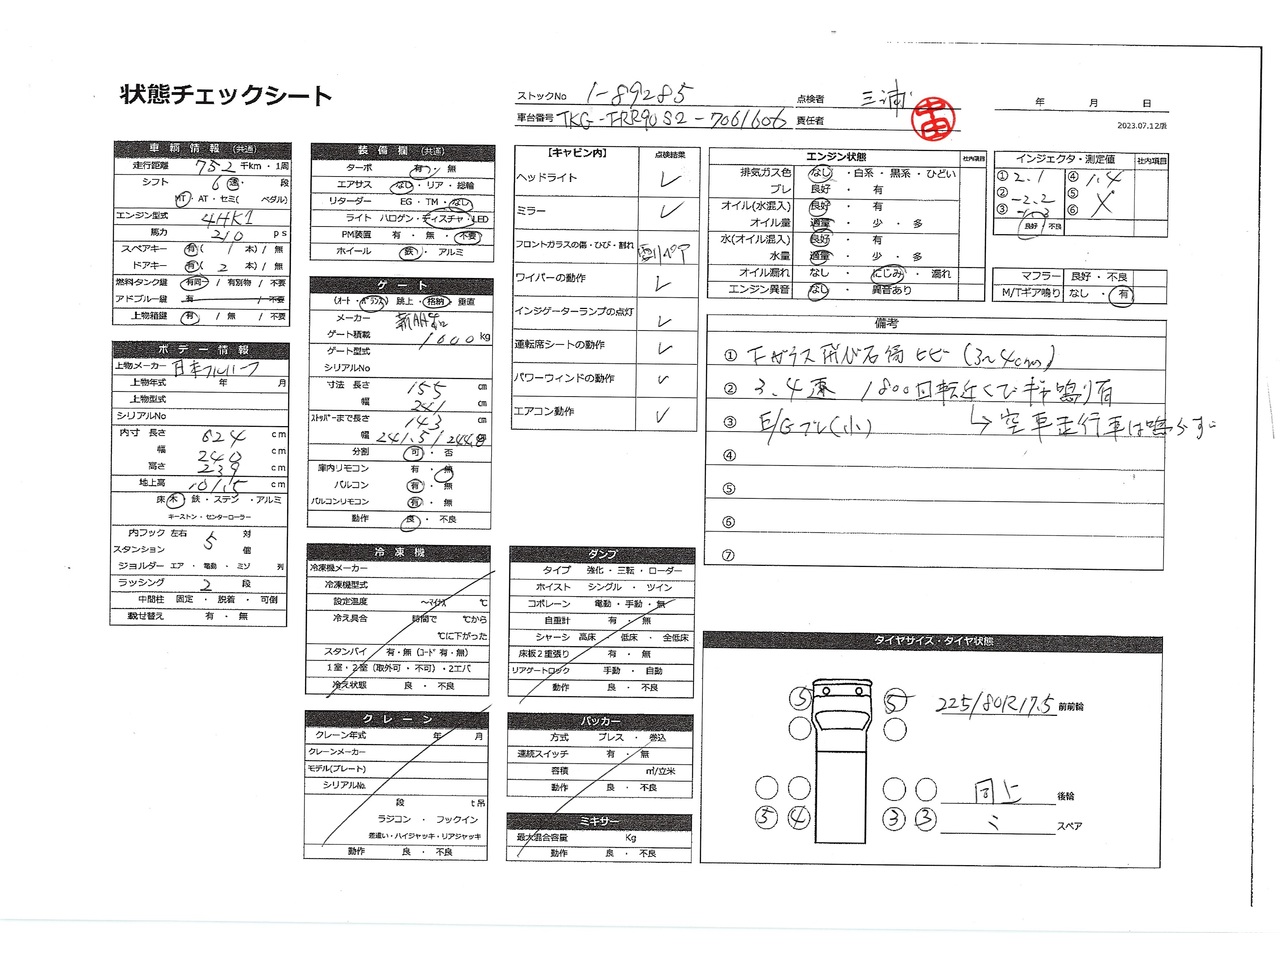 状態チェックシート
ストックNo 1-89285
点検者 三浦
車台番号 TKG-FRR90S2-7061606
責任者
年 月 日
2023.07.12版
車輌情報 (共通)
走行距離 752 千km・1周
シフト 6 速・ 段
MT・AT・セミ( ペダル)
エンジン型式 4HK1
馬力 210 ps
スペアキー 有( 1 本) / 無
ドアキー 有( 2 本) / 無
燃料タンク鍵 有同一 / 有別物 / 不要
アドブルー鍵 有 / 不要
上物箱鍵 有 / 無 / 不要
ボデー情報
上物メーカー 日本フルハーフ
上物年式 年 月
上物型式
シリアルNo
内寸 長さ 624 cm
幅 240 cm
高さ 239 cm
地上高 cm
床 木・鉄・ステン・アルミ
キーストン・センターローラー
内フック 左右 5 対
スタンション 個
ジョルダー エア・電動・ミゾ 列
ラッシング 2 段
中間柱 固定・脱着・可倒
載せ替え 有・無
装備欄 (共通)
ターボ 有・無
エアサス なし・リア・総輪
リターダー EG・TM・なし
ライト ハロゲン・ディスチャ・LED
PM装置 有・無・不要
ホイール 鉄・アルミ
ゲート
(オート・バランス) 跳上・格納・垂直
メーカー
ゲート積載 1000 kg
ゲート型式
シリアルNo
寸法 長さ 155 cm
幅 241 cm
ストッパーまで長さ 143 cm
幅 241.5/244.8 cm
分割 可・否
庫内リモコン 有・無
バルコン 有・無
バルコンリモコン 有・無
動作 良・不良
冷凍機
冷凍機メーカー
冷凍機型式
設定温度 ～マイナス ℃
冷え具合 時間で ℃から
℃に下がった
スタンバイ 有・無 (コード 有・無)
1室・2室 (取外可・不可)・2エバ
冷え状態 良・不良
クレーン
クレーン年式 年 月
クレーンメーカー
モデル(プレート)
シリアルNo.
段 t吊
ラジコン・フックイン
差違い・ハイジャッキ・リアジャッキ
動作 良・不良
【キャビン内】 点検結果
ヘッドライト ✓
ミラー ✓
フロントガラスの傷・ひび・割れ
ワイパーの動作 ✓
インジゲーターランプの点灯 ✓
運転席シートの動作 ✓
パワーウィンドの動作 ✓
エアコン動作 ✓
ダンプ
タイプ 強化・三転・ローダー
ホイスト シングル・ツイン
コボレーン 電動・手動・無
自重計 有・無
シャーシ 高床・低床・全低床
床板2重張り 有・無
リアゲートロック 手動・自動
動作 良・不良
パッカー
方式 プレス・巻込
連続スイッチ 有・無
容積 ㎥/立米
動作 良・不良
ミキサー
最大混合容量 Kg
動作 良・不良
エンジン状態 社内項目
排気ガス色 なし・白系・黒系・ひどい
ブレ 良好・有
オイル(水混入) 良好・有
オイル量 適量・少・多
水(オイル混入) 良好・有
水量 適量・少・多
オイル漏れ なし・にじみ・漏れ
エンジン異音 なし・異音あり
インジェクタ・測定値 社内項目
① 2.1 ④ 1.4
② -2.2 ⑤
③ ⑥ X
良好・不良
マフラー 良好・不良
M/Tギア鳴り なし・有
備考
① Fガラス飛び石傷 ヒビ(3~4cm)
② 3.4速 1800回転近くでギヤ鳴り有
③ E/Gブレ(小) ↳空車走行車は鳴らず
④
⑤
⑥
⑦
タイヤサイズ・タイヤ状態
5 5 225/80R17.5 前前輪
同上 後輪
5 4 3 3 ミ スペア